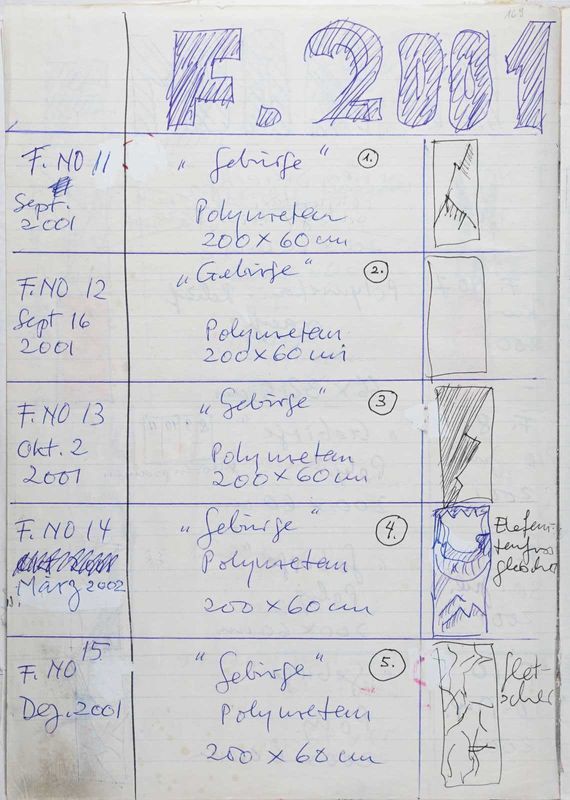 169
F. 2001
F. NO 11
Sept.
2001
"Gebirge" 1.
Polyuretan
200 x 60 cm
F. NO 12
Sept 16
2001
"Gebirge" 2.
Polyuretan
200 x 60 cm
F. NO 13
Okt. 2
2001
"Gebirge" 3
Polyuretan
200 x 60 cm
F. NO 14
März 2002
"Gebirge" 4.
Polyuretan
200 x 60 cm
F. NO 15
Dez. 2001
"Gebirge" 5.
Polyuretan
200 x 60 cm
Glet-
scher